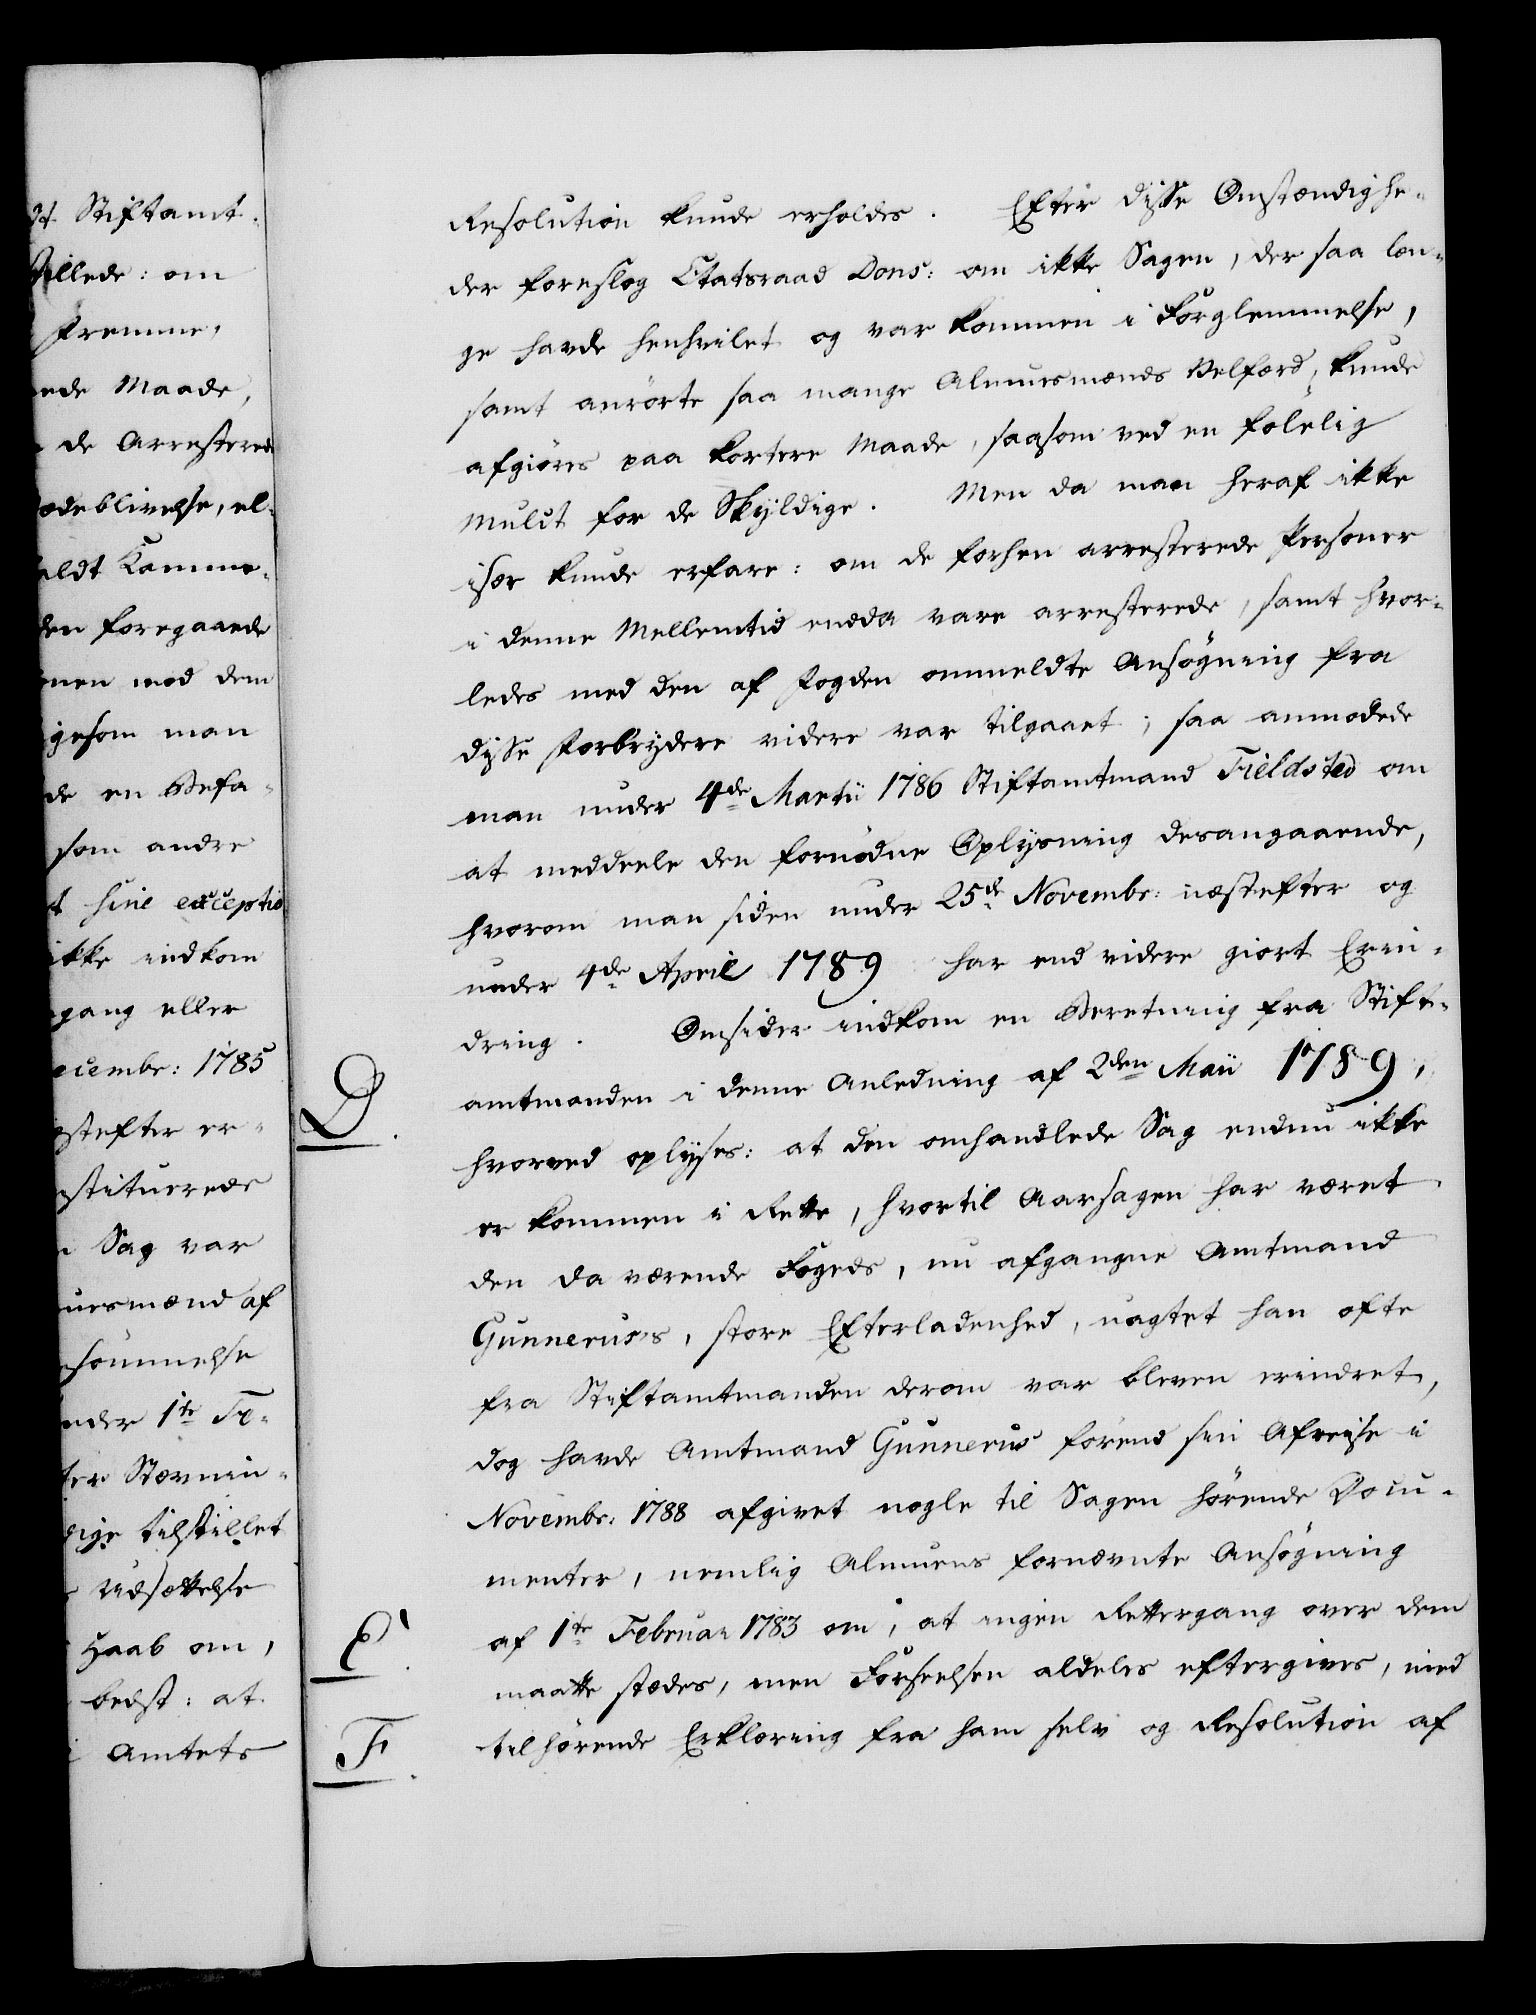 dt Stiftamt-
stillede: om
fremme,
ende Maade,
de Arresterede
ødeblivelse, el-
eldt Kamme-
den foregaaende
men mod dem
igesom man
de en Befa-
som andre
t sine exceptio
ikke indkom
gang eller
ecembr: 1785
estefter er-
nstituerede
Sag var
uesmænd af
rsømmelse
nder 1te Fe-
ter Stævnin-
dige tilstillet
Udsættelse
Haab om,
bedst: at
Amtets
Resolution kunde erholdes. Efter disse Omstændighe-
der foreslog Etatsraad Dons: om ikke Sagen, der saa læn-
ge havde henhvilet og var kommen i Forglemmelse,
samt anrørte saa mange Almuesmænds Velfærd, kunde
afgiøres paa kortere Maade, saasom ved en følelig
Mulct for de Skyldige. Men da man heraf ikke
især kunde erfare: om de forhen arresterede Personer
i denne Mellemtid endda vare arresterede, samt hvor-
ledes med den af Fogden ommeldte Ansøgning fra
disse Forbrydere videre var tilgaaet; saa anmodede
man under 4de Martii 1786 Stiftamtmand Fieldsted om
at meddeele den fornødne Oplysning desangaaende,
hvorom man siden under 25de Novembr: næstefter og
under 4de April 1789 har end videre giort Erin-
dring. Omsider indkom en Beretning fra Stift-
D.
amtmanden i denne Anledning af 2den Maii 1789,
hvorved oplyses: at den omhandlede Sag endnu ikke
er kommen i Rette, hvortil Aarsagen har været
den da værende Fogeds, nu afgangne Amtmand
Gunnerus's, store Efterladenhed, uagtet han ofte
fra Stiftamtmanden derom var bleven erindret,
dog havde Amtmand Gunnerus førend sin Afreise i
Novembr: 1788 afgivet nogle til Sagen hørende Docu-
menter, nemlig Almuens fornævnte Ansøgning
E.
af 1te Februar 1783 om, at ingen Rettergang over dem
maatte stædes, men Forseelsen aldeles eftergives, med
F.
tilhørende Erklæring fra ham selv og Resolution af